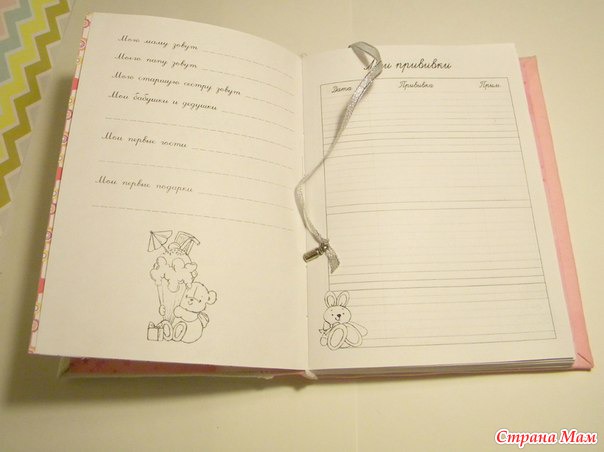 Мою маму зовут
Моего папу зовут
Мою старшую сестру зовут
Мои бабушки и дедушки
Мои первые гости
Мои первые подарки
Мои прививки
Дата Прививка Прим.
Страна Мам